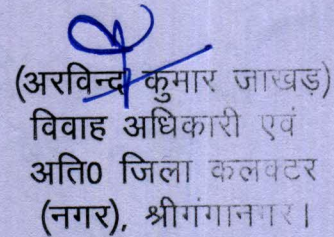 (अरविन्द कुमार जाखड़)
विवाह अधिकारी एवं
अति0 जिला कलक्टर
(नगर), श्रीगंगानगर।